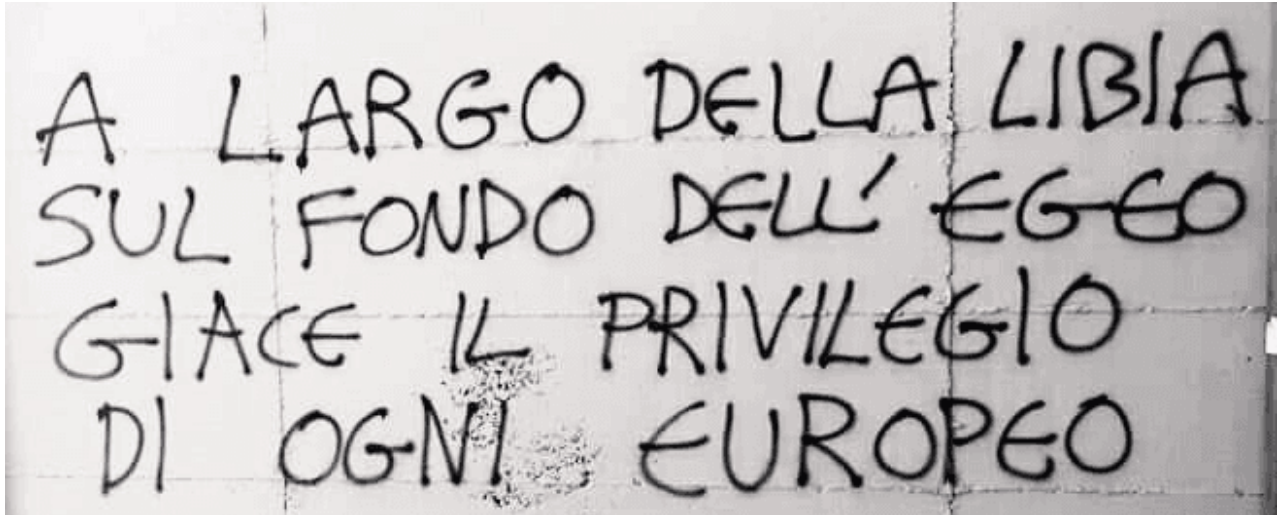 A LARGO DELLA LIBIA
SUL FONDO DELL' EGEO
GIACE IL PRIVILEGIO
DI OGNI EUROPEO